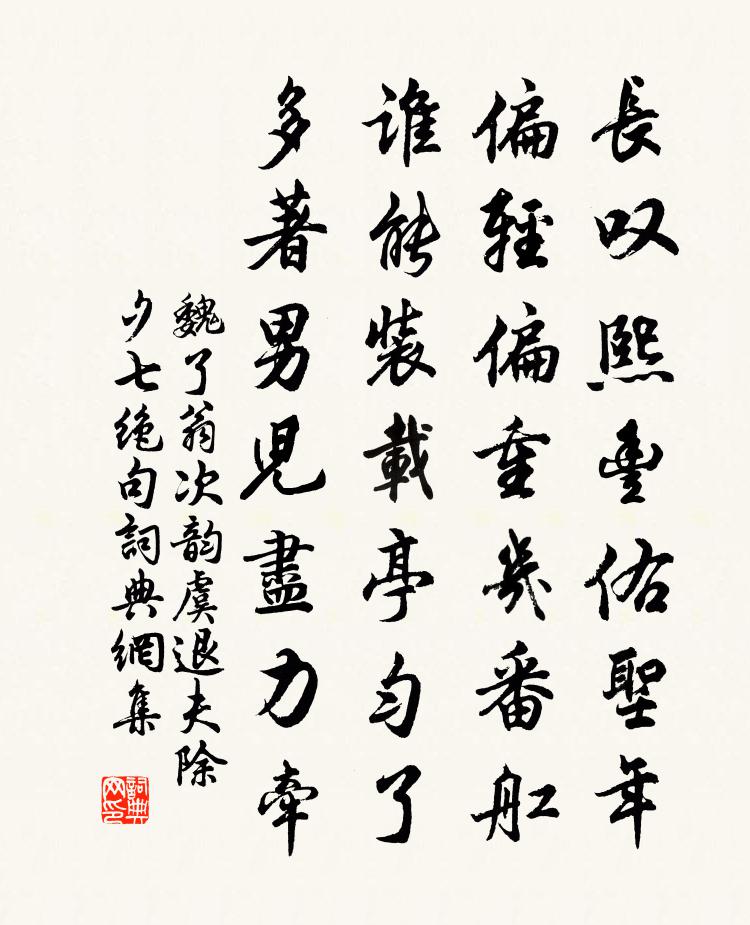 長叹熙豊佑聖年
偏輕偏重幾番舡
誰能裝載亭勻了
多著男兒盡力牽
魏了翁次韵虞退夫除
夕七绝句詞典網集
詞典网印